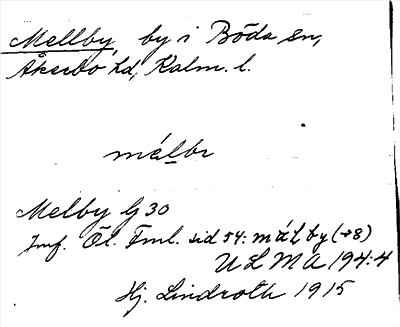 Mellby, by i Böda sn,
Åkerbo hd, Kalm. l.
málbı
Melby lj 30
Jmf. Öl. Fml. sid 54: málby (→8)
ULMA 194:4
Hj. Lindroth 1915